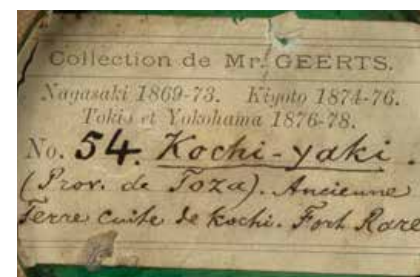 Collection de Mr. GEERTS.
Nagasaki 1869-73. Kiyoto 1874-76.
Tokio et Yokohama 1876-78.
No. 54. Kochi-yaki.
(Prov. de Toza). Ancienne
Terre cuite de Kochi. Fort Rare